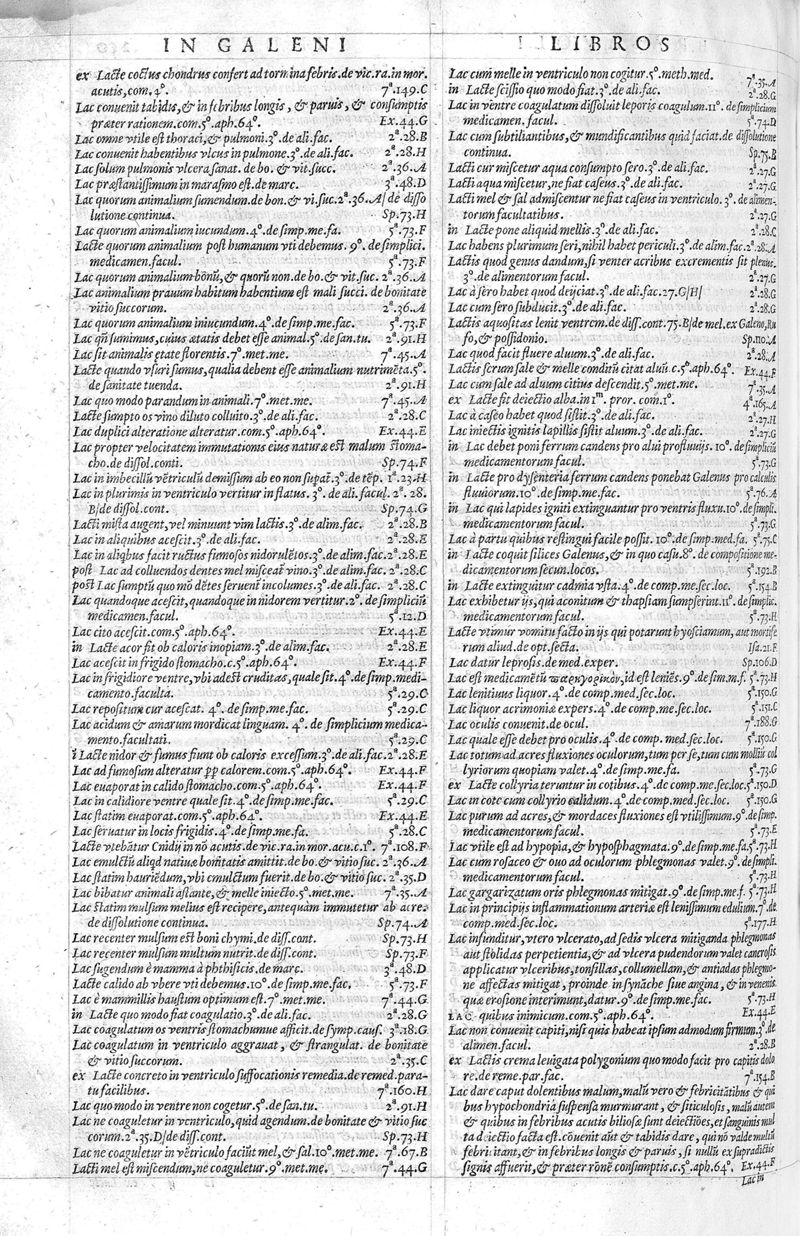 IN GALENI
ex Lacte coctus chondrus confert ad tormina febris.de vic.ra.in mor.
acutis, com.4°. 7ª.149.C
Lac conuenit tabidis, & in febribus longis, & paruis, & consumptis
præter rationem.com.5°.aph.64°. Ex.44.G
Lac omne vtile est thoraci, & pulmoni.3°.de ali.fac. 2ª.28.B
Lac conuenit habentibus vlcus in pulmone.3°.de ali.fac. 2ª.28.H
Lac solum pulmonis vlcera sanat. de bo. & vit.succ. 2ª.36.A
Lac præstantissimum in marasmo est.de marc. 3ª.48.D
Lac quorum animalium sumendum.de bon.& vi.suc.2ª.36.A/de disso
lutione continua. Sp.73.H
Lac quorum animalium iucundum.4°.de simp.me.fa. 5ª.73.F
Lacte quorum animalium post humanum vti debemus. 9°. de simplici.
medicamen.facul. 5ª.73.F
Lac quorum animalium bonũ, & quorũ non.de bo.& vit.suc. 2ª.36.A
Lac animalium prauum habitum habentium est mali succi. de bonitate
vitio succorum. 2ª.36.A
Lac quorum animalium iniucundum.4°.de simp.me.fac. 5ª.73.F
Lac qñ sumimus, cuius ætatis debet esse animal.5°.de san.tu. 2ª.91.H
Lac sit animalis ętate florentis.7°.met.me. 7ª.45.A
Lacte quando vsuri sumus, qualia debent esse animalium nutrimẽta.5°.
de sanitate tuenda. 2ª.91.H
Lac quo modo parandum in animali.7°.met.me. 7ª.45.A
Lacte sumpto os vino diluto colluito.3°.de ali.fac. 2ª.28.C
Lac duplici alteratione alteratur.com.5°.aph.64°. Ex.44.E
Lac propter velocitatem immutationis eius naturæ est malum stoma-
cho.de dissol.conti. Sp.74.F
Lac in imbecillũ vẽtriculũ demissum ab eo non supat̃.3°.de tẽp. 1ª.23.H
Lac in plurimis in ventriculo vertitur in flatus. 3°. de ali.facul. 2ª. 28.
B/de dissol.cont. Sp.74.G
Lacti mista augent, vel minuunt vim lactis.3°.de alim.fac. 2ª.28.B
Lac in aliquibus acescit.3°.de ali.fac. 2ª.28.E
Lac in aliqbus facit ructus fumosos nidorulẽtos.3°.de alim.fac.2ª.28.E
post Lac ad colluendos dentes mel misceat̃ vino.3°.de alim.fac. 2ª.28.C
post Lac sumptũ quo mõ dẽtes seruent̃ incolumes.3°.de ali.fac. 2ª.28.C
Lac quandoque acescit, quandoque in nidorem vertitur.2°. de simpliciũ
medicamen.facul. 5ª.12.D
Lac cito acescit.com.5°.aph.64°. Ex.44.E
in Lacte acor fit ob caloris inopiam.3°.de alim.fac. 2ª.28.E
Lac acescit in frigido stomacho.c.5°.aph.64°. Ex.44.F
Lac in frigidiore ventre, vbi adest cruditas, quale sit.4°.de simp.medi-
camento.faculta. 5ª.29.C
Lac repositum cur acescat. 4°. de simp.me.fac. 5ª.29.C
Lac acidum & amarum mordicat linguam. 4°. de simplicium medica-
mento.facultati. 5ª.29.C
ĩ Lacte nidor & fumus fiunt ob caloris excessum.3°.de ali.fac.2ª.28.E
Lac ad fumosum alteratur pp calorem.com.5°.aph.64°. Ex.44.F
Lac euaporat in calido stomacho.com.5°.aph.64°. Ex.44.F
Lac in calidiore ventre quale sit.4°.de simp.me.fac. 5ª.29.C
Lac statim euaporat.com.5°.aph.64°. Ex.44.E
Lac seruatur in locis frigidis. 4°.de simp.me.fa. 5ª.28.C
Lacte vtebãtur Cnidij in nõ acutis.de vic.ra.in mor.acu.c.1°. 7ª.108.F
Lac emulctũ aliqd natiuæ bonitatis amittit.de bo.& vitio suc. 2ª.36.A
Lac statim hauriẽdum, vbi emulctum fuerit.de bo.& vitio suc. 2ª.35.D
Lac bibatur animali astante, & melle iniecto.5°.met.me. 7ª.35.A
Lac statim mulsum melius est recipere, antequam immutetur ab aere.
de dissolutione continua. Sp.74.A
Lac recenter mulsum est boni chymi.de diss.cont. Sp.73.H
Lac recenter mulsum multum nutrit.de diss.cont. Sp.73.F
Lac sugendum è mamma à phthisicis.de marc. 3ª.48.D
Lacte calido ab vbere vti debemus.10°.de simp.me.fac. 5ª.73.F
Lac è mammillis haustum optimum est.7°.met.me. 7ª.44.G
in Lacte quo modo fiat coagulatio.3°.de ali.fac. 2ª.28.G
Lac coagulatum os ventris stomachumue afficit.de symp.caus. 3ª.18.G
Lac coagulatum in ventriculo aggrauat, & strangulat. de bonitate
& vitio succorum. 2ª.35.C
ex Lacte concreto in ventriculo suffocationis remedia.de remed.para-
tu facilibus. 7ª.160.H
Lac quo modo in ventre non cogetur.5°.de san.tu. 2ª.91.H
Lac ne coaguletur in ventriculo, quid agendum.de bonitate & vitio suc
corum.2ª.35.D/de diss.cont. Sp.73.H
Lac ne coaguletur in vẽtriculo faciũt mel, & sal.10°.met.me. 7ª.67.B
Lacti mel est miscendum, ne coaguletur.9°.met.me. 7ª.44.G
LIBROS
Lac cum melle in ventriculo non cogitur.5°.meth.med. 7ª.35.A
in Lacte scissio quo modo fiat.3°.de ali.fac. 2ª.28.G
Lac in ventre coagulatum dissoluit leporis coagulum.11°. de simplicium
medicamen.facul. 5ª.74.D
Lac cum subtiliantibus, & mundificantibus quid faciat.de dissolutione
continua. Sp.75.B
Lacti cur miscetur aqua consumpto sero.3°.de ali.fac. 2ª.27.G
Lacti aqua miscetur, ne fiat caseus.3°.de ali.fac. 2ª.27.G
Lacti mel & sal admiscentur ne fiat caseus in ventriculo. 3°.de alimen-
torum facultatibus. 2ª.27.G
in Lacte pone aliquid mellis.3°.de ali.fac. 2ª.28.C
Lac habens plurimum seri, nihil habet periculi.3°.de alim.fac.2ª.28.A
Lactis quod genus dandum, si venter acribus excrementis sit plenus.
3°.de alimentorum facul. 2ª.27.G
Lac à sero habet quod deijciat.3°.de ali.fac.27.G/H/ 2ª.28.G
Lac cum sero subducit.3°.de ali.fac. 2ª.28.G
Lactis aquositas lenit ventrem.de diss.cont.75.B/de mel.ex Galeno, Ru
fo, & possidonio. Sp.110.A
Lac quod facit fluere aluum.3°.de ali.fac. 2ª.28.A
Lactis serum sale & melle conditũ citat aluũ.c.5°.aph.64°. Ex.44.F
Lac cum sale ad aluum citius descendit.5°.met.me. 7ª.35.A
ex Lacte fit deiectio alba.in 1ᵐ. pror.com.1°. 4ª.165.A
Lac à caseo habet quod sistit.3°.de ali.fac. 2ª.27.H
Lac iniectis ignitis lapillis sistit aluum.3°.de ali.fac. 2ª.27.G
in Lac debet poni ferrum candens pro alui profluuijs.10°. de simpliciũ
medicamentorum facul. 5ª.73.G
in Lacte pro dysenteria ferrum candens ponebat Galenus pro calculis
fluuiorum.10°.de simp.me.fac. 5ª.76.A
in Lac qui lapides igniti extinguantur pro ventris fluxu.10°.de simpli.
medicamentorum facul. 5ª.73.G
Lac à partu quibus restingui facile possit. 10°.de simp.med.fa. 5ª.75.C
in Lacte coquit silices Galenus, & in quo casu.8°. de compositione me-
dicamentorum secun.locos. 5ª.192.B
in Lacte extinguitur cadmia vsta.4°.de comp.me.sec.loc. 5ª.154.B
Lac exhibetur ijs, qui aconitum & thapsiam sumpserint.11°.de simplic.
medicamentorum facul. 5ª.73.H
Lacte vtimur vomitu facto in ijs qui potarunt hyosciamum, aut mortife
rum aliud.de opt.secta. Isa.21.F
Lac datur leprosis.de med.exper. Sp.106.D
Lac est medicamẽtũ παρηγορικὸν, id est leniẽs.9°.de sim.m.f. 5ª.73.H
Lac lenitiuus liquor.4°.de comp.med.sec.loc. 5ª.150.G
Lac liquor acrimoniæ expers.4°.de comp.me.sec.loc. 5ª.151.C
Lac oculis conuenit.de ocul. 7ª.188.G
Lac quale esse debet pro oculis.4°.de comp. med.sec.loc. 5ª.150.G
Lac totum ad acres fluxiones oculorum, tum per se, tum cum mollium col
lyriorum quopiam valet.4°.de simp.me.fa. 5ª.73.G
ex Lacte collyria teruntur in cotibus.4°.de comp.me.sec.loc.5ª.150.D
Lac in cote cum collyrio calidum.4°.de comp.med.sec.loc. 5ª.150.G
Lac purum ad acres, & mordaces fluxiones est vtilissimum.9°.de simp.
medicamentorum facul. 5ª.73.E
Lac vtile est ad hypopia, & hyposphagmata.9°.de simp.me.fa.5ª.73.H
Lac cum rosaceo & ouo ad oculorum phlegmonas valet.9°.de simpli.
medicamentorum facul. 5ª.73.H
Lac gargarizatum oris phlegmonas mitigat.9°.de simp.me.f. 5ª.73.H
Lac in principijs inflammationum arteriæ est lenissimum edulium.7°.de
comp.med.sec.loc. 5ª.177.H
Lac infunditur, vtero vlcerato, ad sedis vlcera mitiganda phlegmonas
aut stolidas perpetientia, & ad vlcera pudendorum valet cancrosis
applicatur vlceribus, tonsillas, columellam, & antiadas phlegmo-
ne affectas mitigat, proinde in synãche siue angina, & in venenis.
quæ erosione interimunt, datur.9°.de simp.me.fac. 5ª.73.H
LAC quibus inimicum.com.5°.aph.64°. Ex.44.E
Lac non conuenit capiti, nisi quis habeat ipsum admodum firmum.3°.de
alimen.facul. 2ª.28.B
ex Lactis crema leuigata polygonium quo modo facit pro capitis dolo
re.de reme.par.fac. 7ª.154.B
Lac dare caput dolentibus malum, malũ vero & febricitãtibus & qui
bus hypochondria suspensa murmurant, & siticulosis, malũ autem
& quibus in febribus acutis biliosæ sunt deiectiões, et sanguinis mul
ta deiectio facta est.cõuenit aũt & tabidis dare, qui nõ valde multũ
febricitant, & in febribus longis & paruis, si nullũ ex supradictis
signis affuerit, & præter rõnẽ consumptis.c.5°.aph.64°. Ex.44.F
Lac in